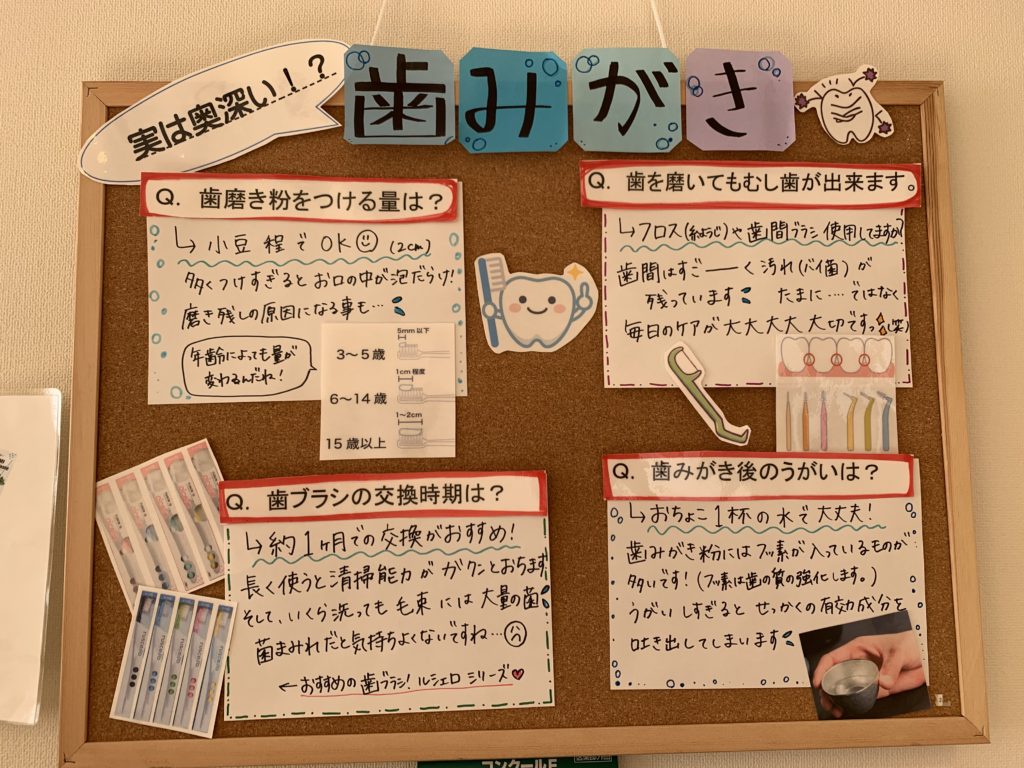 実は奥深い！？
歯みがき
Q. 歯磨き粉をつける量は？
↳小豆程でOK☺(2cm)
多くつけすぎるとお口の中が泡だらけ!
磨き残しの原因になる事も…
年齢によっても量が
変わるんだね!
5mm以下
3～5歳
1cm程度
6～14歳
1～2cm
15歳以上
Q. 歯を磨いてもむし歯が出来ます。
↳フロス(糸ようじ)や歯間ブラシ使用してますか?
歯間はすご――く汚れ(バイ菌)が
残っています たまに‥‥ではなく
毎日のケアが大大大大大切ですっ(笑)
Q. 歯ブラシの交換時期は？
↳約1ヶ月での交換がおすすめ!
長く使うと清掃能力がガクンとおちます
そして、いくら洗っても毛束には大量の菌
菌まみれだと気持ちよくないですね…☹
←おすすめの歯ブラシ!ルシェロシリーズ♥
Q. 歯みがき後のうがいは？
↳おちょこ1杯の水で大丈夫!
歯みがき粉にはフッ素が入っているものが
多いです!(フッ素は歯の質の強化します。)
うがいしすぎるとせっかくの有効成分を
吐き出してしまいます
コンクールF